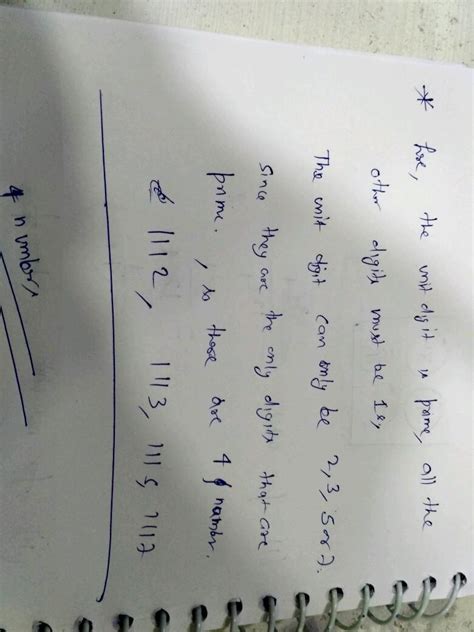 * here, the unit digit is prime, all the
other digits must be 1s,
The unit digit can only be 2,3, 5 or 7.
Since they are the only digits that are
prime. , so those are 4 number.
1112, 1113, 1115, 1117
4 numbers